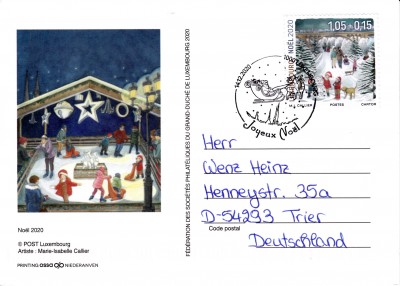 NOËL 2020
1,05+0,15
M.-I. CALLIER POSTES CARTOR
14.12.2020
Joyeux Noël
Herr
Wenz Heinz
Henneystr. 35a
D-54293 Trier
Code postal
Deutschland
FÉDÉRATION DES SOCIÉTÉS PHILATÉLIQUES DU GRAND-DUCHÉ DE LUXEMBOURG 2020
Noël 2020
© POST Luxembourg
Artiste : Marie-Isabelle Callier
PRINTING OSSA NIEDERANVEN